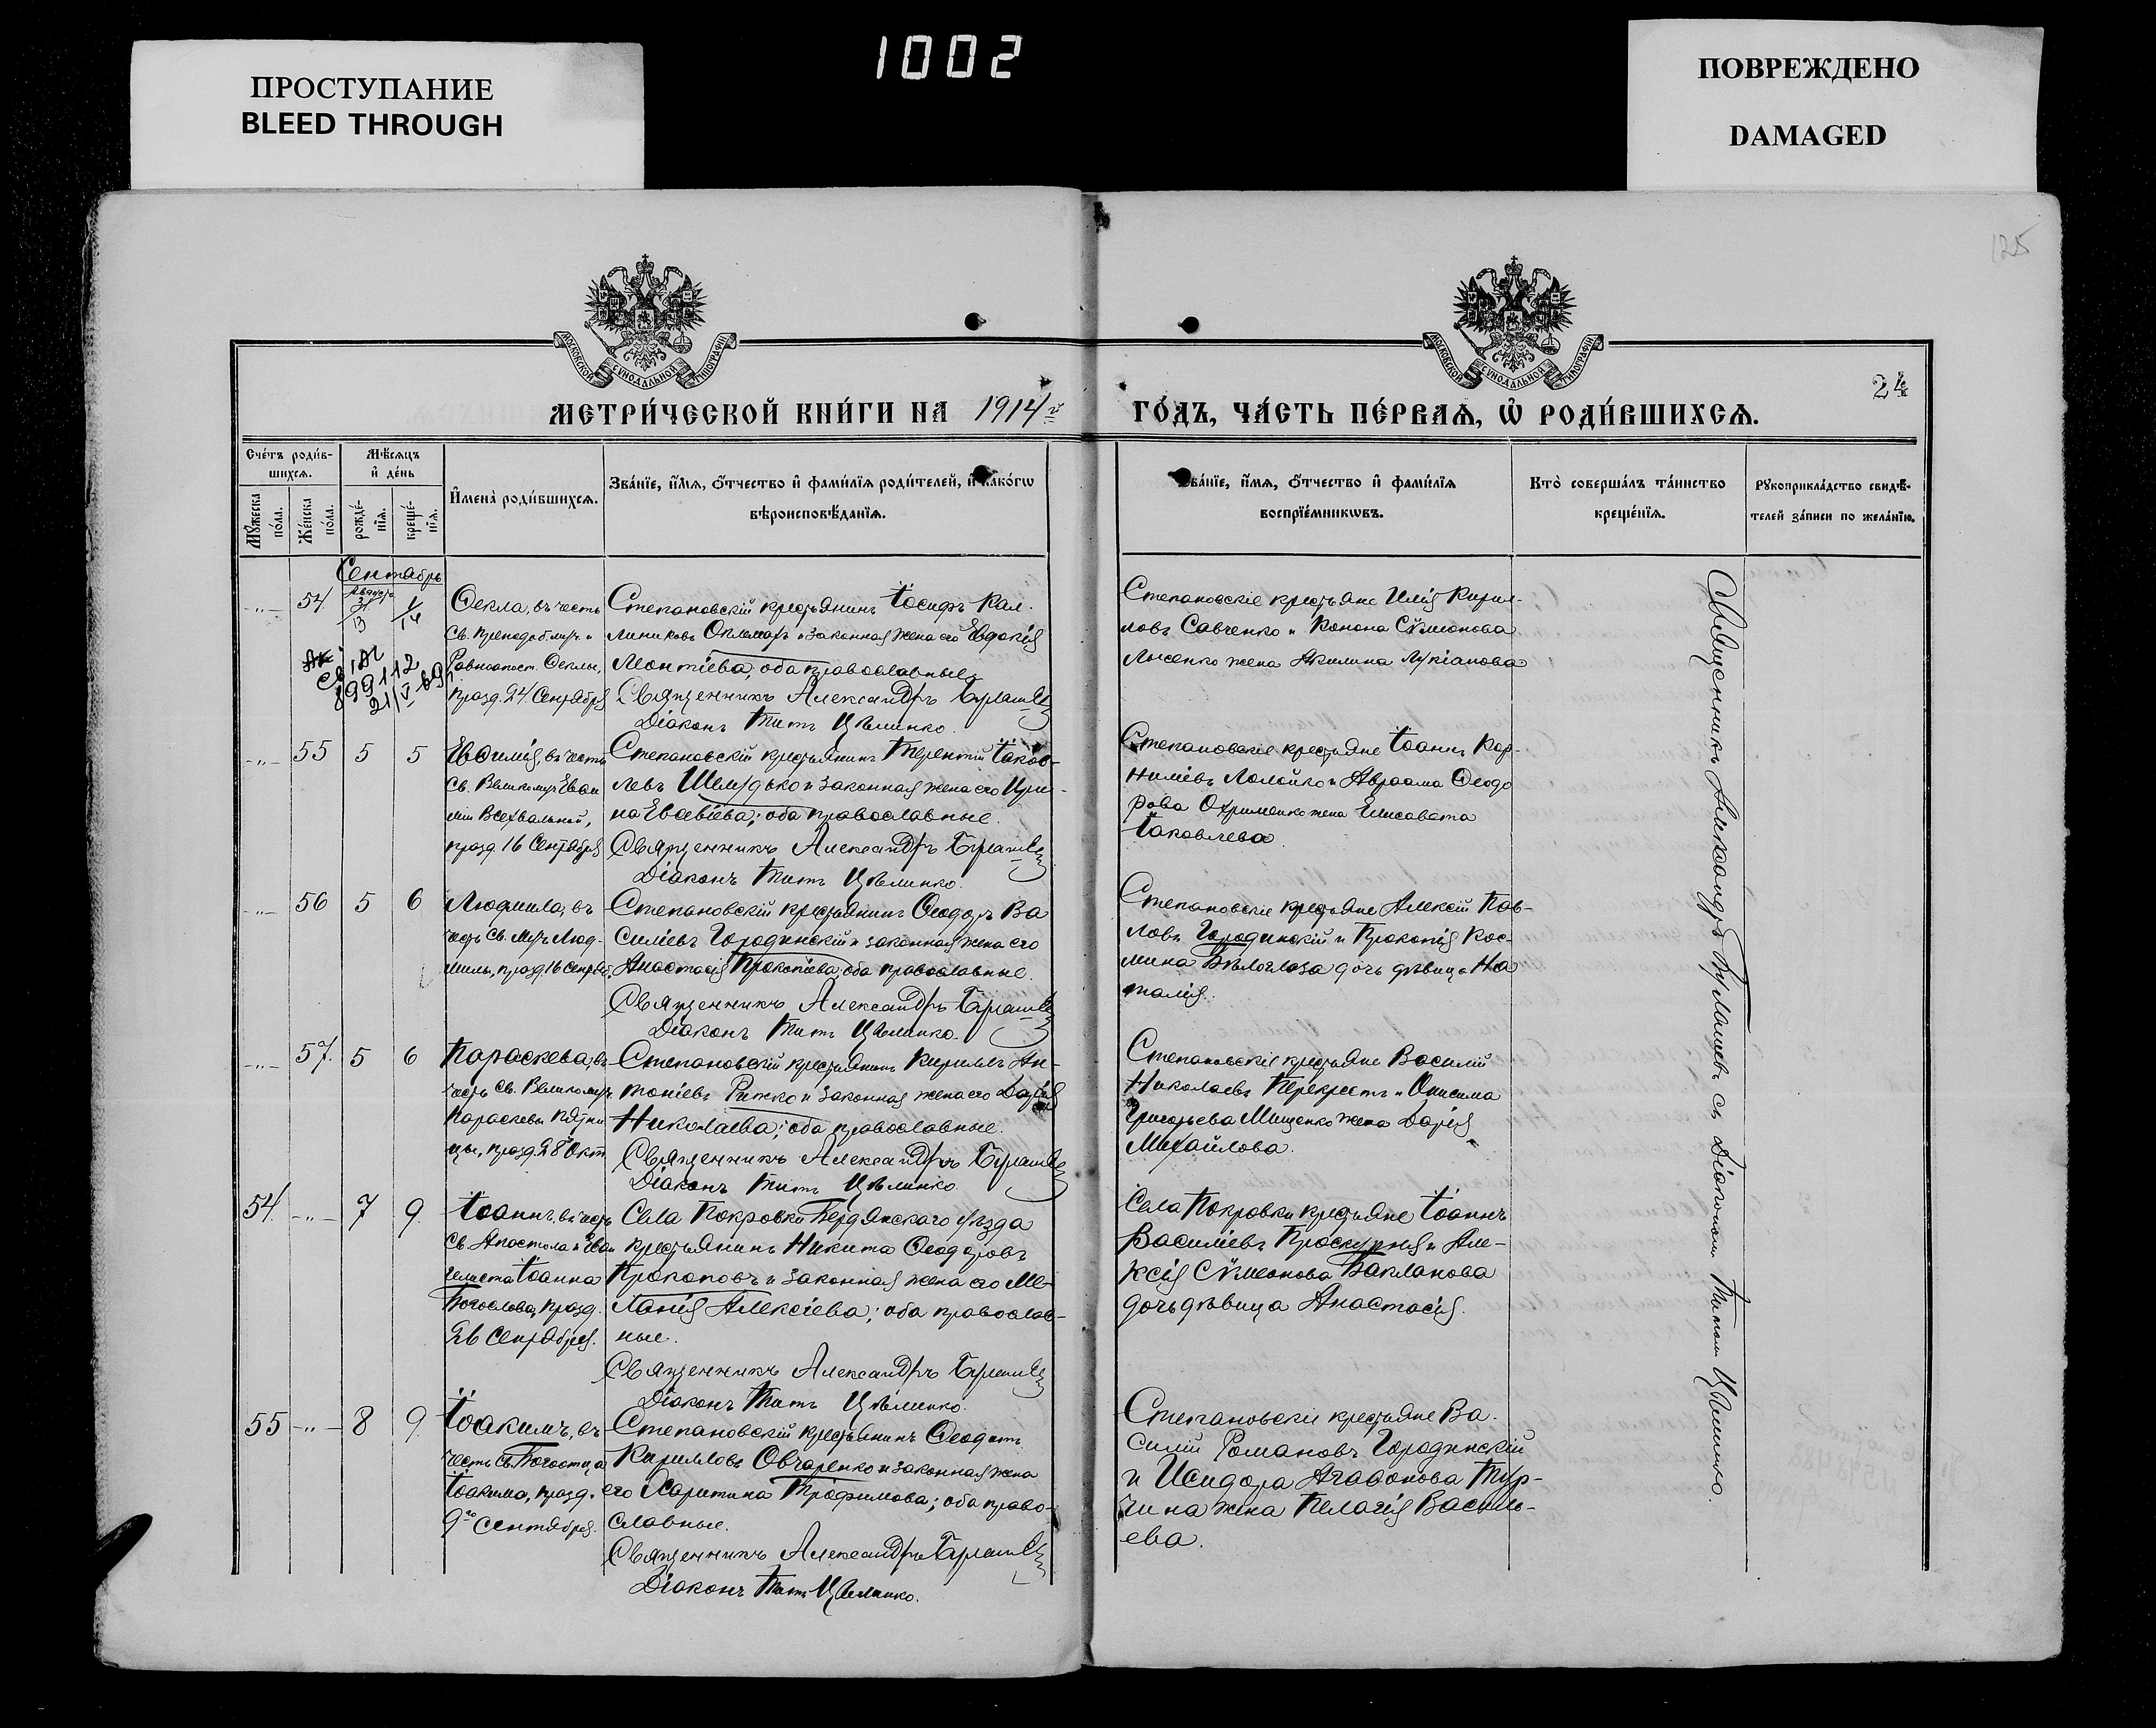 1002
ПРОСТУПАНИЕ
BLEED THROUGH
ПОВРЕЖДЕНО
DAMAGED
125
24
МОСКОВСКОЙ СѴНОДАЛЬНОЙ ТИПОГРАФІИ
МОСКОВСКОЙ СѴНОДАЛЬНОЙ ТИПОГРАФІИ
МЕТРИ́ЧЕСКОЙ КНИ́ГИ НА 1914й
ГО́ДЪ, ЧА́СТЬ ПЕ́РВАѦ, Ѡ҆ РОДИ́ВШИХСѦ.
Сче́тъ роди́в-
шихсѧ.
Мꙋ́жеска по́ла.
Же́нска по́ла.
Мѣ́сѧцъ
и҆ де́нь
рожде́-
нїѧ.
креще́-
нїѧ.
И҆мена̀ роди́вшихсѧ.
Зва́нїе, и҆́мѧ, ѻ҆́тчество и҆ фами́лїѧ роди́телей, и҆ како́гѡ
вѣроисповѣ́данїѧ.
Зва́нїе, и҆́мѧ, ѻ҆́тчество и҆ фами́лїѧ
воспрїе́мникѡвъ.
Кто̀ соверша́лъ та́инство
креще́нїѧ.
Рꙋкоприкла́дство свидѣ́-
телей за́писи по жела́нїю.
Сентябрь
-"- 54
Августа
31/13 1/14
Ѳекла, въ честь
Св. Преподобмуч. и
Равноапост. Ѳеклы,
празд. 24 Сентября
Степановскій крестьянинъ Іосифъ Кал-
линиковъ и законная жена его Евдокія
Леонтіева, оба православные
Священникъ Александръ
Діаконъ Титъ Цѣлинко.
Степановскіе крестьяне Илія Кирил-
ловъ Савченко и Конона Сѵмеонова
Лысенко жена Акилина Лукіанова
-"- 55 5 5
Евѳимія, въ честь
Св. Великомуч Евѳи
міи Всехвальной,
празд 16 Сентября
Степановскій крестьянинъ Терентій Іаков-
левъ и законная жена его Ири-
на Евсевіева; оба православные.
Священникъ Александръ
Діаконъ Титъ Цѣлинко.
Степановскіе крестьяне Іоаннъ Кор-
ниліевъ Лолойко и Авраама Ѳеодо
рова Охрименко жена Елисавета
Іаковлева
-"- 56 5 6
Людмила, въ
честь Св. Муч Люд-
милы, празд. 16 Сентяб.
Степановскій крестьянинъ Ѳеодоръ Ва
силіевъ Городинскій и законная жена его
Анастасія Прокопіева; оба православные.
Священникъ Александръ
Діаконъ Титъ Цѣлинко.
Степановскіе крестьяне Алексій Пав-
ловъ Городинскій и Прокопія Кос-
мина Бѣлоглаза дочь дѣвица На
талія.
-"- 57. 5 6
Параскева, въ
честь Св. Великомуч
Параскевы Пятни
цы, празд. 28 Окт.
Степановскій крестьянинъ Кириллъ Ан-
тоніевъ Рижко и законная жена его Дарія
Николаева; оба православные.
Священникъ Александръ
Діаконъ Титъ Цѣлинко
Степановскіе крестьяне Василій
Николаевъ Перекрестъ и Онисима
Григорьева Мищенко жена Дарія
Михайлова.
54. -"- 7 9.
Іоаннъ, въ честь
Св. Апостола и Еван
гелиста Іоанна
Богослова, празд.
26 Сентября.
Села Покровки Бердянскаго уѣзда
крестьянинъ Никита Ѳеодоровъ
Прокоповъ и законная жена его Ме-
ланія Алексіева; оба православ-
ные.
Священникъ Александръ
Діаконъ Титъ Цѣлинко.
Села Покровки крестьяне Іоаннъ
Василіевъ Проскурня и Але-
ксія Сѵмеонова Бакланова
дочь дѣвица Анастасія.
55 -"- 8 9
Іоакимъ, въ
честь Св. Богоотца
Іоакима, празд.
9го Сентября.
Степановскій крестьянинъ Ѳеодотъ
Кирилловъ Овчаренко и законная жена
его Харитина Трофимова; оба право-
славные.
Священникъ Александръ
Діаконъ Титъ Цѣлинко.
Степановскіе крестьяне Ва-
силій Романовъ Городинскій
и Исидора Агаѳонова Тур-
чина жена Пелагія Василь-
ева.
Священникъ Александръ съ Діакономъ Титомъ Цѣлинко.